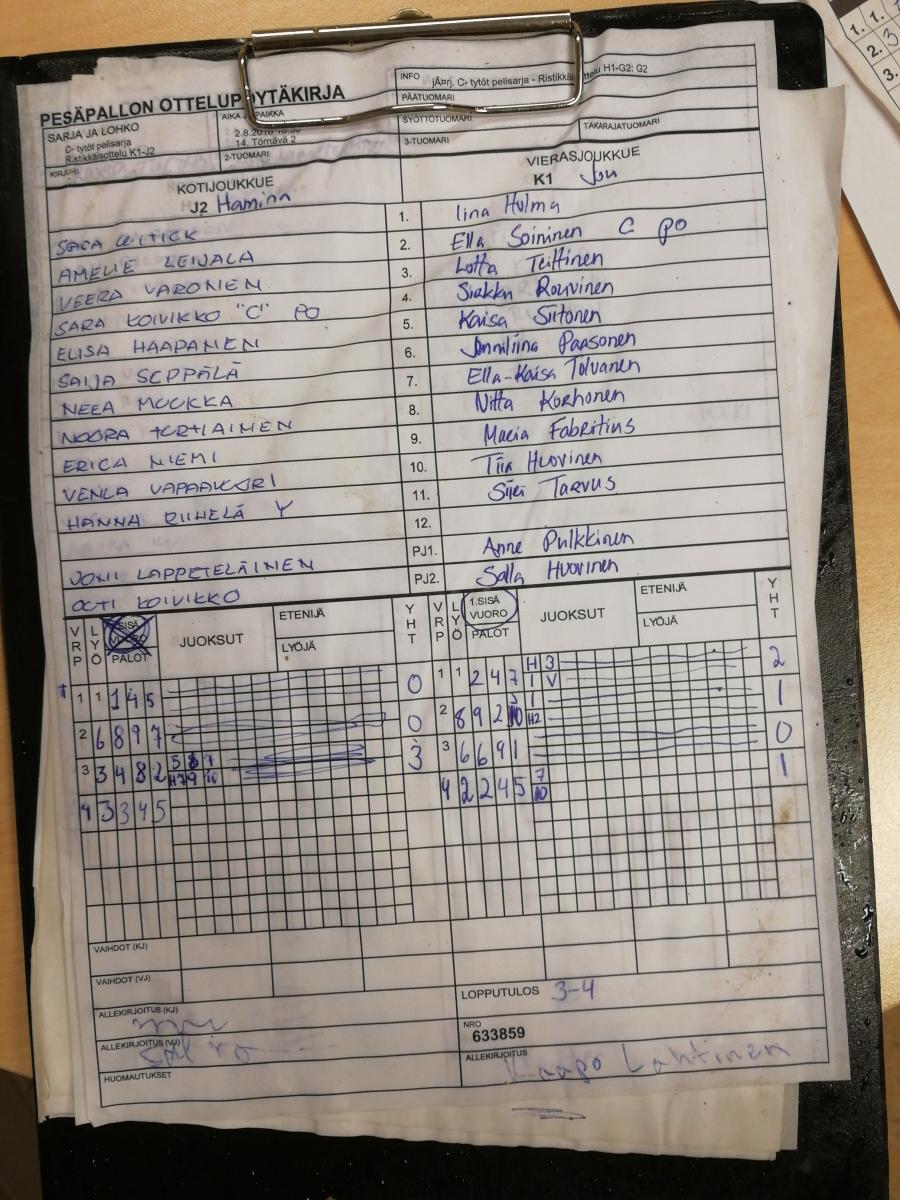 PESÄPALLON OTTELUPÖYTÄKIRJA
INFO C- tytöt pelisarja - Ristikkäisottelu H1-G2: G2
PÄÄTUOMARI
SARJA JA LOHKO
C- tytöt pelisarja
Ristikkäisottelu K1-J2
AIKA JA PAIKKA
14. Törmävä 2
SYÖTTÖTUOMARI
KIRJURI
2-TUOMARI
3-TUOMARI
TAKARAJATUOMARI
KOTIJOUKKUE
J2 Hamina
VIERASJOUKKUE
K1 Jou
1. Iina Hulma
2. Ella Soininen C PO
AMELIE LEIJALA
3. Lotta Teittinen
VEERA VARONEN
4. Rouvinen
SARA KOIVIKKO "C" PO
5. Kaisa Siitonen
ELISA HAAPANEN
6. Anniliina Paasonen
SAIJA SEPPÄLÄ
7. Ella-Kaisa Tolvanen
NEEA MOUKKA
8. Korhonen
NOORA
9. Maria Fabritius
ERICA NIEMI
10. Tiia Huovinen
VENLA
11. Tarvus
HANNA RIIHELÄ Y
12.
PJ1. Anne Pulkkinen
JONI LAPPETELÄINEN
PJ2. Salla Huovinen
OUTI KOIVIKKO
VRP LYÖ 1.SISÄ VUORO PALOT JUOKSUT ETENIJÄ LYÖJÄ YHT
VRP LYÖ 1.SISÄ VUORO PALOT JUOKSUT ETENIJÄ LYÖJÄ YHT
1 1 1 4 5 0
1 1 2 4 7 H 3 I V 2
2 6 8 9 7 0
2 8 9 2 10 1
3 3 4 8 2 3
3 6 6 9 1 0
4 3 3 4 5
4 2 2 4 5 7 10 1
VAIHDOT (KJ)
VAIHDOT (VJ)
ALLEKIRJOITUS (KJ)
LOPPUTULOS 3-4
ALLEKIRJOITUS (VJ)
NRO
633859
HUOMAUTUKSET
ALLEKIRJOITUS Kaapo Lahtinen
1. 1.
2. 3
3.